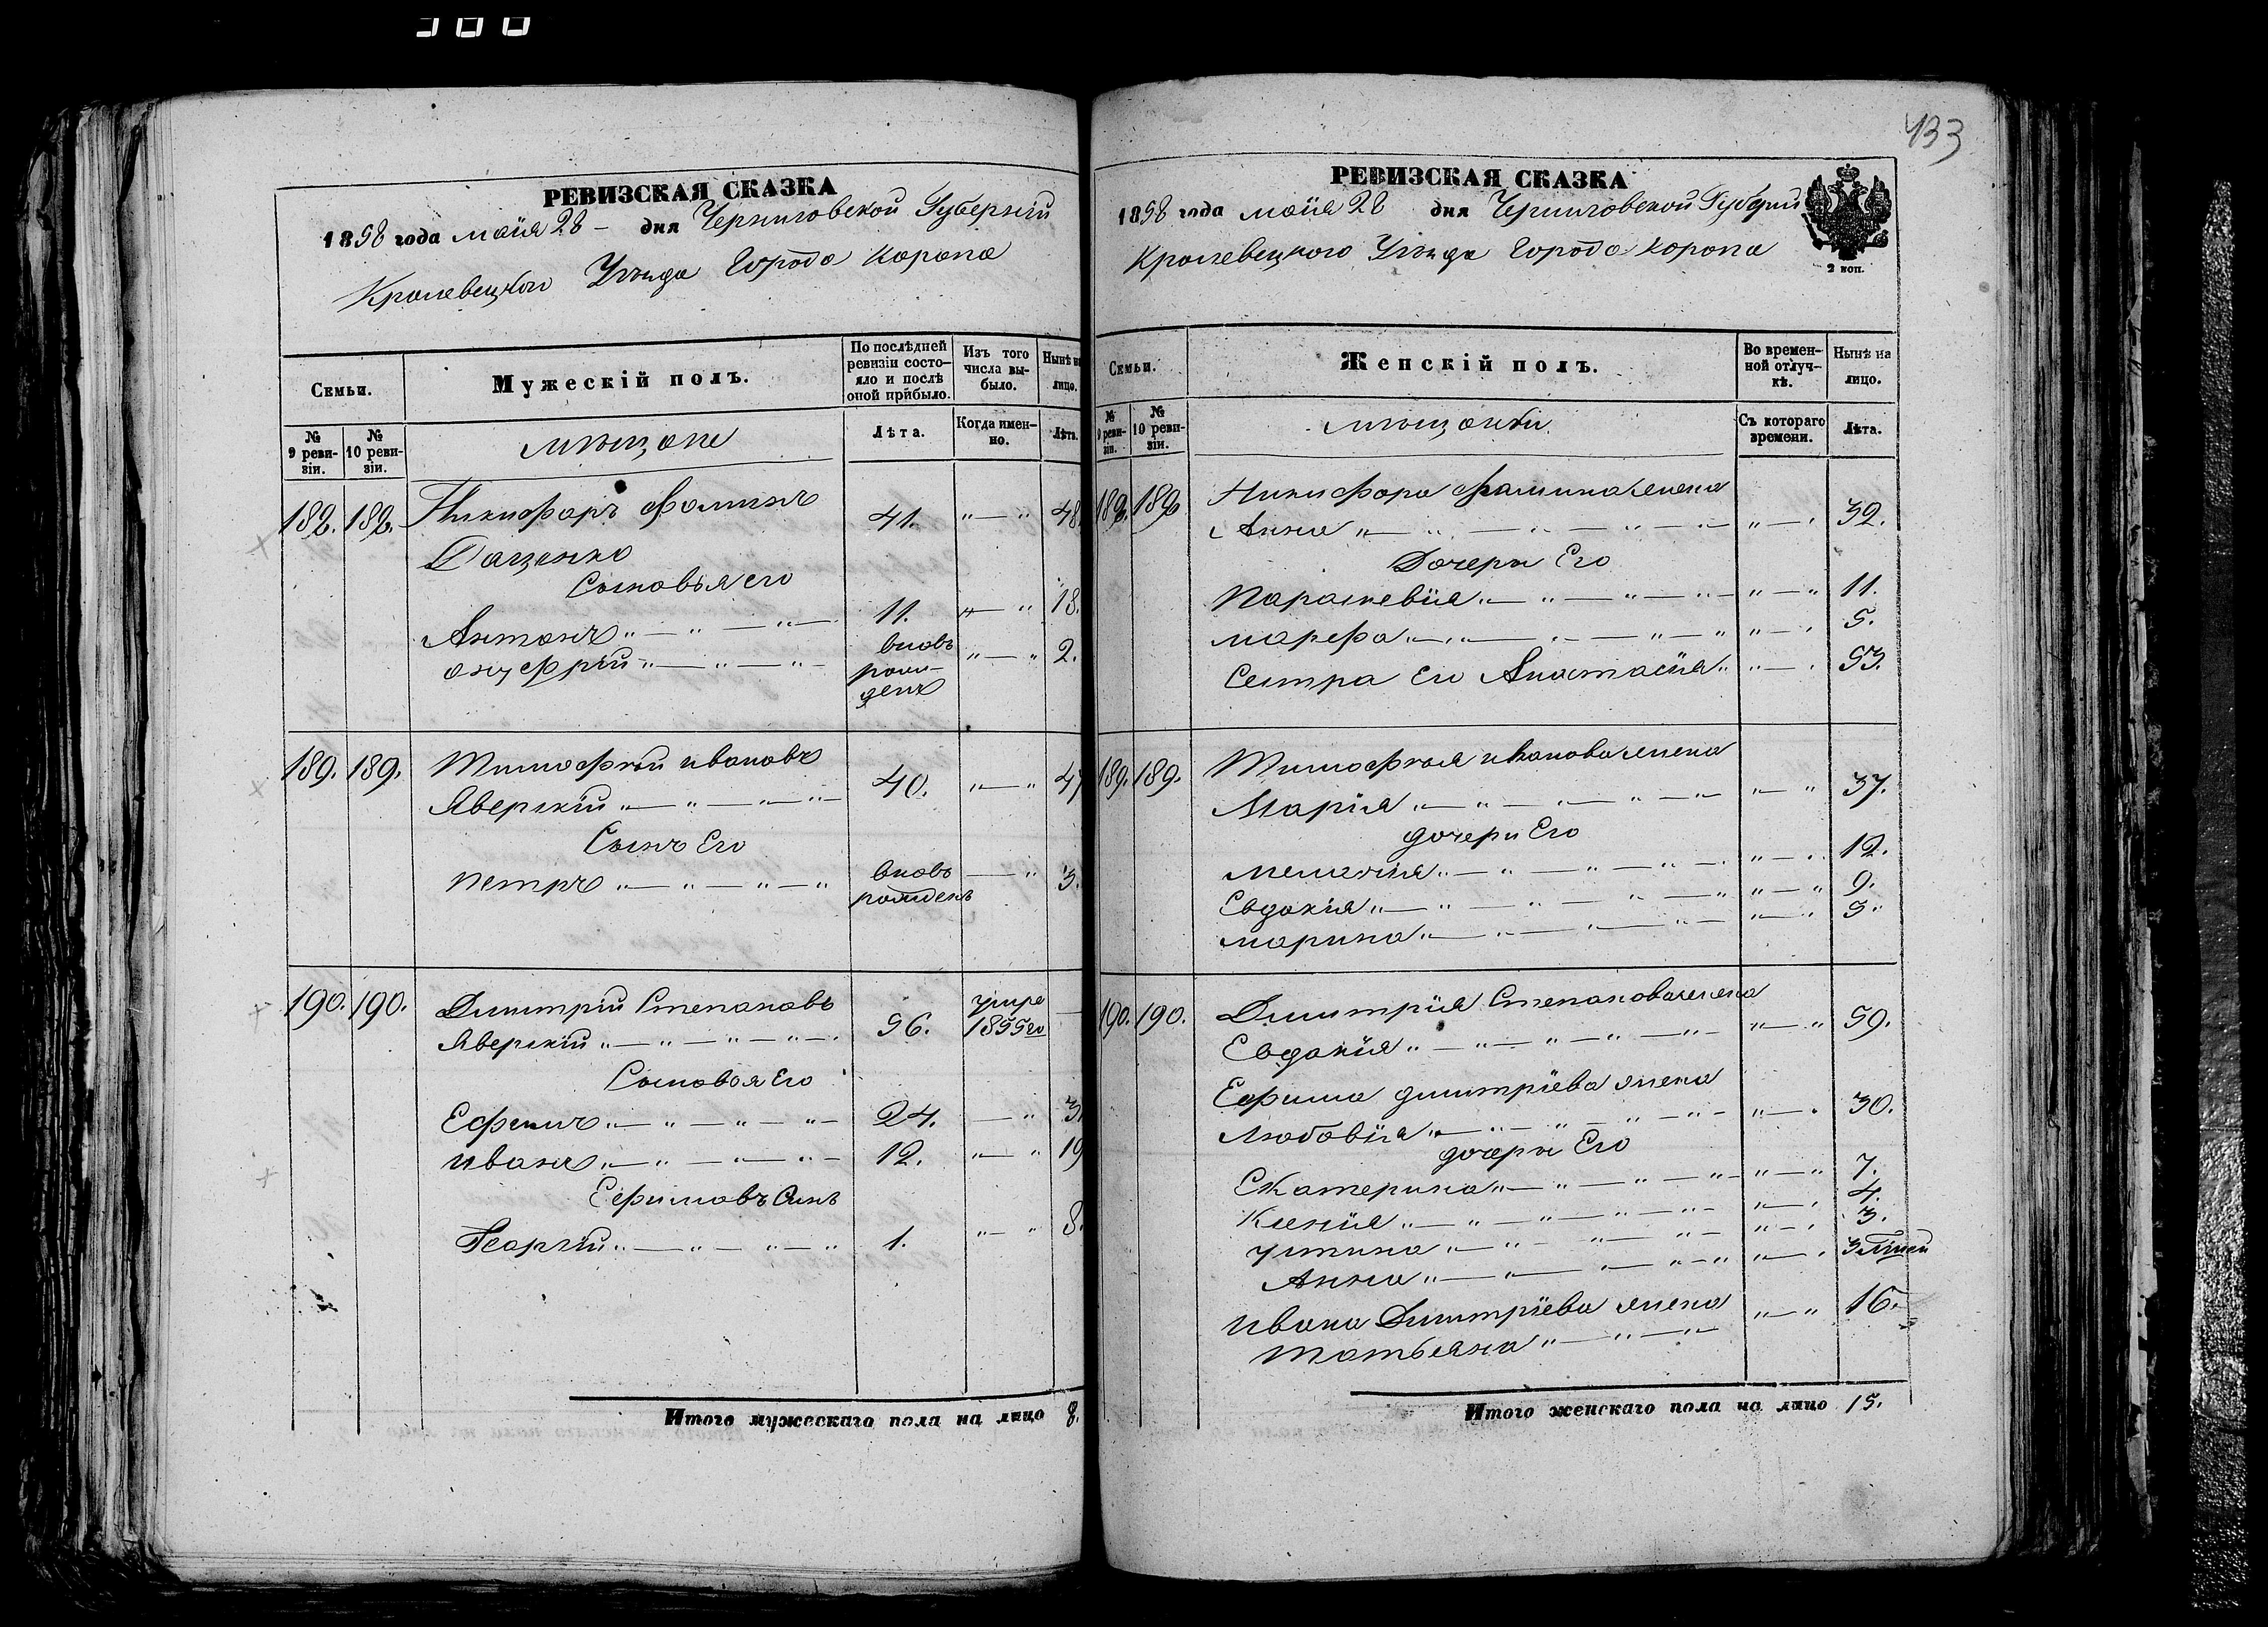 433
РЕВИЗСКАЯ СКАЗКА
1858 года маія 28 – дня Черниговской Губерніи
Кролевецкого Уѣзда Города Коропа
Семьи.
Мужескій полъ.
По послѣдней ревизіи состо-
яло и послѣ оной прибыло.
Изъ того числа вы-
было.
Нынѣ на лицо.
№ 9 реви-
зіи.
№ 10 реви-
зіи.
мѣщане
Лѣта.
Когда имен-
но.
Лѣта.
188. 188. Никифоръ Фоминъ 41. „—„ 48.
Даценко
Сыновья его
Антонъ „—„—„— 11. „—„ 18.
онуфрій „—„—„— вновь рож-
денъ „—„ 2.
189. 189. Тимофѣй ивановъ
Яверскій „—„—„—„— 40. „—„ 47
Сынъ Его
петръ „—„—„—„ вновь рожденъ —„ 3.
190. 190. Димитрій Степановъ
Яверскій „—„—„—„—. 56. умре 1855го —
Сыновья Его
Ефимъ „—„—„—„— 24. —„ 3
иванъ „—„—„—„— 12. „—„ 19
Ефимовъ Сынъ
Георгій „—„—„—„ 1. „—„ 8.
Итого мужескаго пола на лицо 8.
РЕВИЗСКАЯ СКАЗКА
1858 года маія 28 дня Черниговской Губерніи
Кролевецкого Уѣзда Города Коропа
2 коп.
Семьи.
Женскій полъ.
Во времен-
ной отлуч-
кѣ.
Нынѣ на лицо.
№ 9 реви-
зіи.
№ 10 реви-
зіи.
мѣщанки
Съ котораго времени.
Лѣта.
188. 188 Никифора Фомина жена
Анна „—„—„—„— „—„ 32.
Дочери Его
Параскевія „—„—„—„— „—„ 11.
марфа „—„—„—„—„ „—„ 5.
Сестра Его Анастасія „ „—„ 53.
189. 189. Тимофѣя иванова жена
Марія „—„—„—„—„— „—„ 37.
дочери Его
Меланія „—„—„—„—. „—„ 12.
Евдокія „—„—„—„—„ „—„ 9.
марина „—„—„—„— „—„ 3.
190. 190. Димитрія Степанова жена
Евдокія „—„—„—„—„— „—„ 59.
Ефима димитріева жена
Любовія „—„—„—„—„— „—„ 30.
дочери Его
Екатерина „—„—„—„— „—„ 7.
Ксенія „—„—„—„—„— „—„ 4.
устина „—„—„—„— „—„ 3.
Анна „—„—„—„—„ „—„ 3
ивана Димитріева жена
татьяна „—„—„ „—„ 16.
Итого женскаго пола на лицо 15.